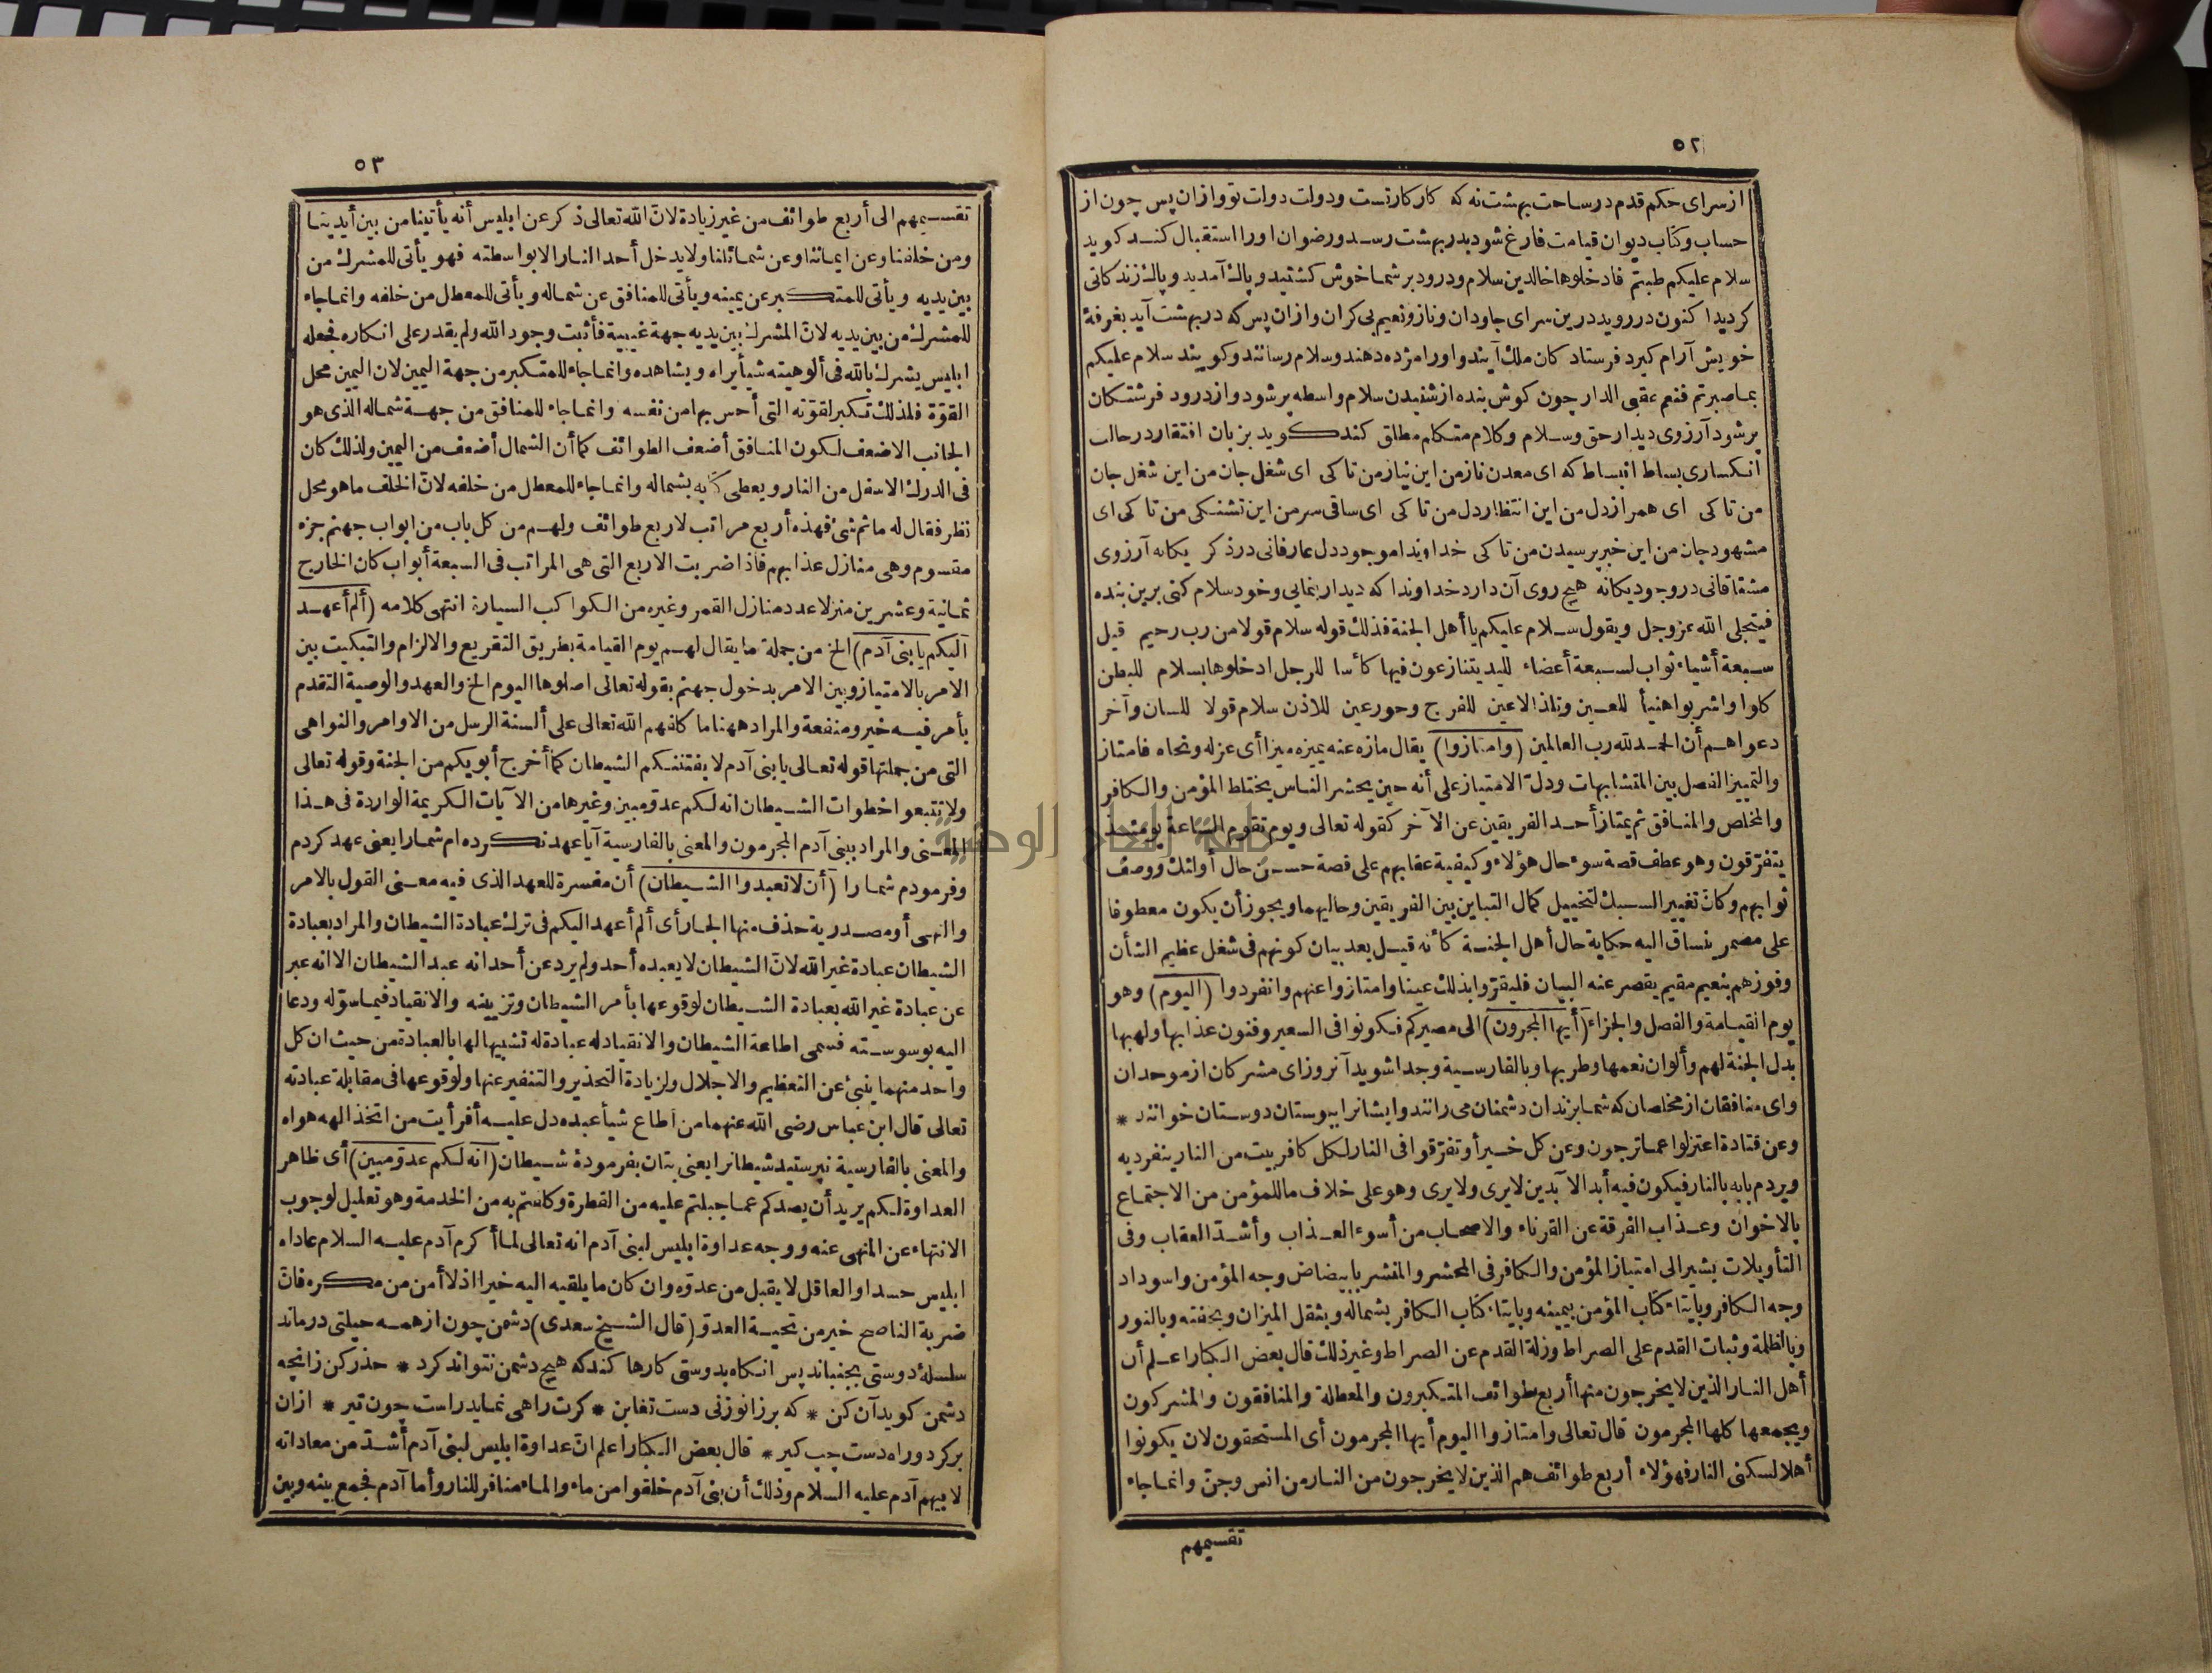 ٥٢
از سرای حکم قدم در ساحت بهشت نه که کار کار تست و دولت دولت تو و از ان پس چون از
حساب و کتاب دیوان قیامت فارغ شود بدر بهشت رسد و رضوان او را استقبال کند کوید
سلام علیکم طبتم فادخلوها خالدین سلام و درود بر شما خوش کشتید و پاك آمدید و پاك زندکانی
کردید اکنون در روید درین سرای جاودان و ناز و نعیم بی کران و ازان پس که در بهشت آید بغرفۀ
خویش آرام کیرد فرستاد کان ملك آیند و او را مژده دهند و سلام رسانند و کویند سلام علیکم
بما صبرتم فنعم عقبی الدار چون کوش بنده از شنیدن سلام واسطه پر شود و از درود فرشتکان
پر شود آرزوی دیدار حق و سلام و کلام متکلم مطلق کند کوید بزبان افتقار در حالت
انکساری بساط انبساط که ای معدن ناز من این نیاز من تا کی ای شغل جان من این شغل جان
من تا کی ای همراز دل من این انتظار دل من تا کی ای ساقی سر من این تشنکی من تا کی ای
مشهود جان من این خبر پرسیدن من تا کی خداوندا موجود دل عارفانی در ذکر یکانه آرزوی
مشتاقانی در وجود یکانه هیچ روی آن دارد خداوندا که دیدار بنمایی و خود سلام کنی برین بنده
فیتجلی الله عز وجل ویقول سلام علیکم یا أهل الجنة فذلك قوله سلام قولا من رب رحیم قیل
سبعة أشیاء ثواب لسبعة أعضاء للید یتنازعون فیها کأسا للرجل ادخلوها بسلام للبطن
کلوا واشربوا هنیأ للعین وتلذ الاعین للفرج وحور عین للاذن سلام قولا للسان وآخر
دعواهم أن الحمد لله رب العالمین (وامتازوا) یقال مازه عنه یمیزه میزا أی عزله ونحاه فامتاز
والتمییز الفصل بین المتشابهات ودل الامتیاز علی أنه حین یحشر الناس یختلط المؤمن والکافر
والمخلص والمنافق ثم یمتاز أحد الفریقین عن الآخر کقوله تعالی ویوم تقوم الساعة یومئذ
یتفرقون وهو عطف قصة سوء حال هؤلاء وکیفیة عقابهم علی قصة حسن حال أولئك ووصف
ثوابهم وکان تغییر السبك لتخییل کمال التباین بین الفریقین وحالیهما ویجوز أن یکون معطوفا
علی مضمر ینساق الیه حکایة حال أهل الجنة کأنه قیل بعد بیان کونهم فی شغل عظیم الشأن
وفوزهم بنعیم مقیم یقصر عنه البیان فلیقروا بذلك عینا وامتازوا عنهم وانفردوا (الیوم) وهو
یوم القیامة والفصل والجزاء (أیها المجرمون) الی مصیرکم فکونوا فی السعیر وفنون عذابها ولهبها
بدل الجنة لهم وألوان نعمها وطربها وبالفارسیة وجدا شوید آنروز ای مشرکان از موحدان
وای منافقان از مخلصان که شما بزندان دشمنان می رانند وایشانرا ببوستان دوستان خوانند *
وعن قتادة اعتزلوا عما ترجون وعن کل خیر أو تفرقوا فی النار لکل کافر بیت من النار ینفرد به
ویردم بابه بالنار فیکون فیه أبد الآبدین لا یری ولا یری وهو علی خلاف ما للمؤمن من الاجتماع
بالاخوان وعذاب الفرقة عن القرناء والاصحاب من أسوء العذاب وأشد العقاب وفی
التأویلات یشیر الی امتیاز المؤمن والکافر فی المحشر والمنشر بابیضاض وجه المؤمن واسوداد
وجه الکافر وبایتاء کتاب المؤمن بیمینه وبایتاء کتاب الکافر بشماله وبثقل المیزان وبخفته وبالنور
وبالظلمة وثبات القدم علی الصراط وزلة القدم عن الصراط وغیر ذلك قال بعض الکبار اعلم أن
أهل النار الذین لا یخرجون منها أربع طوائف المتکبرون والمعطلة والمنافقون والمشرکون
ویجمعها کلها المجرمون قال تعالی وامتازوا الیوم أیها المجرمون أی المستحقون لان یکونوا
أهلا لسکنی النار فهؤلاء أربع طوائف هم الذین لا یخرجون من النار من انس وجن وانما جاء
تقسیمهم
٥٣
تقسیمهم الی أربع طوائف من غیر زیادة لان الله تعالی ذکر عن ابلیس أنه یأتینا من بین أیدینا
ومن خلفنا وعن ایماننا وعن شمائلنا ولا یدخل أحد النار الا بواسطته فهو یأتی للمشرك من
بین یدیه ویأتی للمتکبر عن یمینه ویأتی للمنافق عن شماله ویأتی للمعطل من خلفه وانما جاء
للمشرك من بین یدیه لان المشرك بین یدیه جهة غیبیة فأثبت وجود الله ولم یقدر علی انکاره فجعله
ابلیس یشرك بالله فی ألوهیته شیأ یراه ویشاهده وانما جاء للمتکبر من جهة الیمین لان الیمین محل
القوة فلذلك تکبر لقوته التی أحس بها من نفسه وانما جاء للمنافق من جهة شماله الذی هو
الجانب الاضعف لکون المنافق أضعف الطوائف کما أن الشمال أضعف من الیمین ولذلك کان
فی الدرك الاسفل من النار ویعطی کتابه بشماله وانما جاء للمعطل من خلفه لان الخلف ما هو محل
نظر فقال له ما ثم شئ فهذه أربع مراتب لاربع طوائف ولهم من کل باب من ابواب جهنم جزء
مقسوم وهی منازل عذابهم فاذا ضربت الاربع التی هی المراتب فی السبعة أبواب کان الخارج
ثمانیة وعشرین منزلا عدد منازل القمر وغیره من الکواکب السیارة انتهی کلامه (ألم أعهد
الیکم یا بنی آدم) الخ من جملة ما یقال لهم یوم القیامة بطریق التقریع والالزام والتبکیت بین
الامر بالامتیاز وبین الامر بدخول جهنم بقوله تعالی اصلوها الیوم الخ والعهد والوصیة التقدم
بأمر فیه خیر ومنفعة والمراد ههنا ما کلفهم الله تعالی علی ألسنة الرسل من الاوامر والنواهی
التی من جملتها قوله تعالی یا بنی آدم لا یفتننکم الشیطان کما أخرج أبویکم من الجنة وقوله تعالی
ولا تتبعوا خطوات الشیطان انه لکم عدو مبین وغیرها من الآیات الکریمة الواردة فی هذا
المعنی والمراد ببنی آدم المجرمون والمعنی بالفارسیة آیا عهد نکرده ام شما را یعنی عهد کردم
وفرمودم شما را (أن لا تعبدوا الشیطان) أن مفسرة للعهد الذی فیه معنی القول بالامر
والنهی أو مصدریة حذف منها الجار أی ألم أعهد الیکم فی ترك عبادة الشیطان والمراد بعبادة
الشیطان عبادة غیر الله لان الشیطان لا یعبده أحد ولم یرد عن أحد انه عبد الشیطان الا انه عبر
عن عبادة غیر الله بعبادة الشیطان لوقوعها بأمر الشیطان وتزیینه والانقیاد فیما سوله ودعا
الیه بوسوسته فسمی اطاعة الشیطان والانقیاد له عبادة له تشبیها لها بالعبادة من حیث ان کل
واحد منهما ینبئ عن التعظیم والاجلال ولزیادة التحذیر والتنفیر عنها ولوقوعها فی مقابلة عبادته
تعالی قال ابن عباس رضی الله عنهما من أطاع شیأ عبده دل علیه أفرأیت من اتخذ الهه هواه
والمعنی بالفارسیة نپرستید شیطانرا یعنی بتان بفرمودۀ شیطان (انه لکم عدو مبین) أی ظاهر
العداوة لکم یرید أن یصدکم عما جبلتم علیه من الفطرة وکلفتم به من الخدمة وهو تعلیل لوجوب
الانتهاء عن المنهی عنه ووجه عداوة ابلیس لبنی آدم انه تعالی لما أکرم آدم علیه السلام عاداه
ابلیس حسدا والعاقل لا یقبل من عدوه وان کان ما یلقیه الیه خیرا اذ لا أمن من مکره فان
ضربة الناصح خیر من تحیة العدو (قال الشیخ سعدی) دشمن چون از همه حیلتی درماند
سلسلۀ دوستی بجنباند پس انکاه بدوستی کارها کند که هیچ دشمن نتواند کرد * حذر کن زانچه
دشمن کوید آن کن * که بر زانو زنی دست تغابن * کرت راهی نماید راست چون تیر * ازان
برکرد وراه دست چپ کیر * قال بعض الکبار اعلم ان عداوة ابلیس لبنی آدم أشد من معاداته
لابیهم آدم علیه السلام وذلك أن بنی آدم خلقوا من ماء والماء منافر للنار وأما آدم فجمع بینه وبین